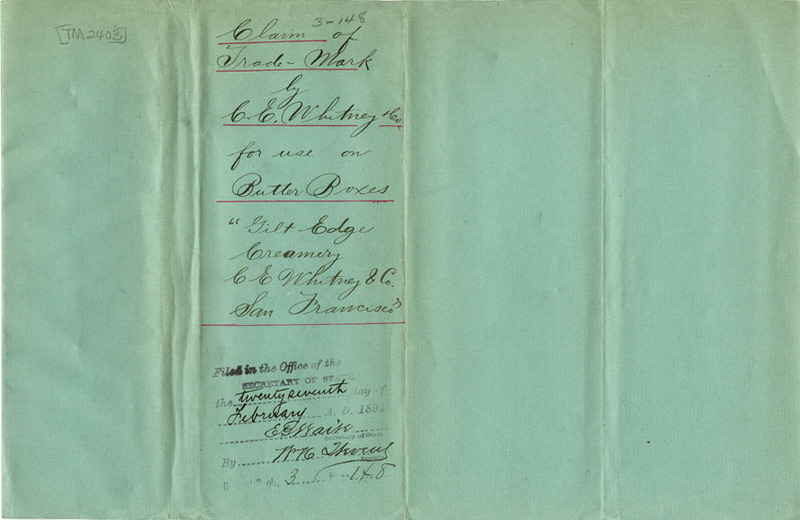 [TM2403]
3-148
Claim of
Trade-Mark
by
C. E. Whitney & Co
for use on
Butter Boxes
"Gilt Edge
Creamery
C E Whitney & Co.
San Francisco"
Filed in the Office of the
SECRETARY OF STATE
the twenty seventh day of
February A. D. 1894
E G Waite
Secretary of State
By W H
Deputy
3 148